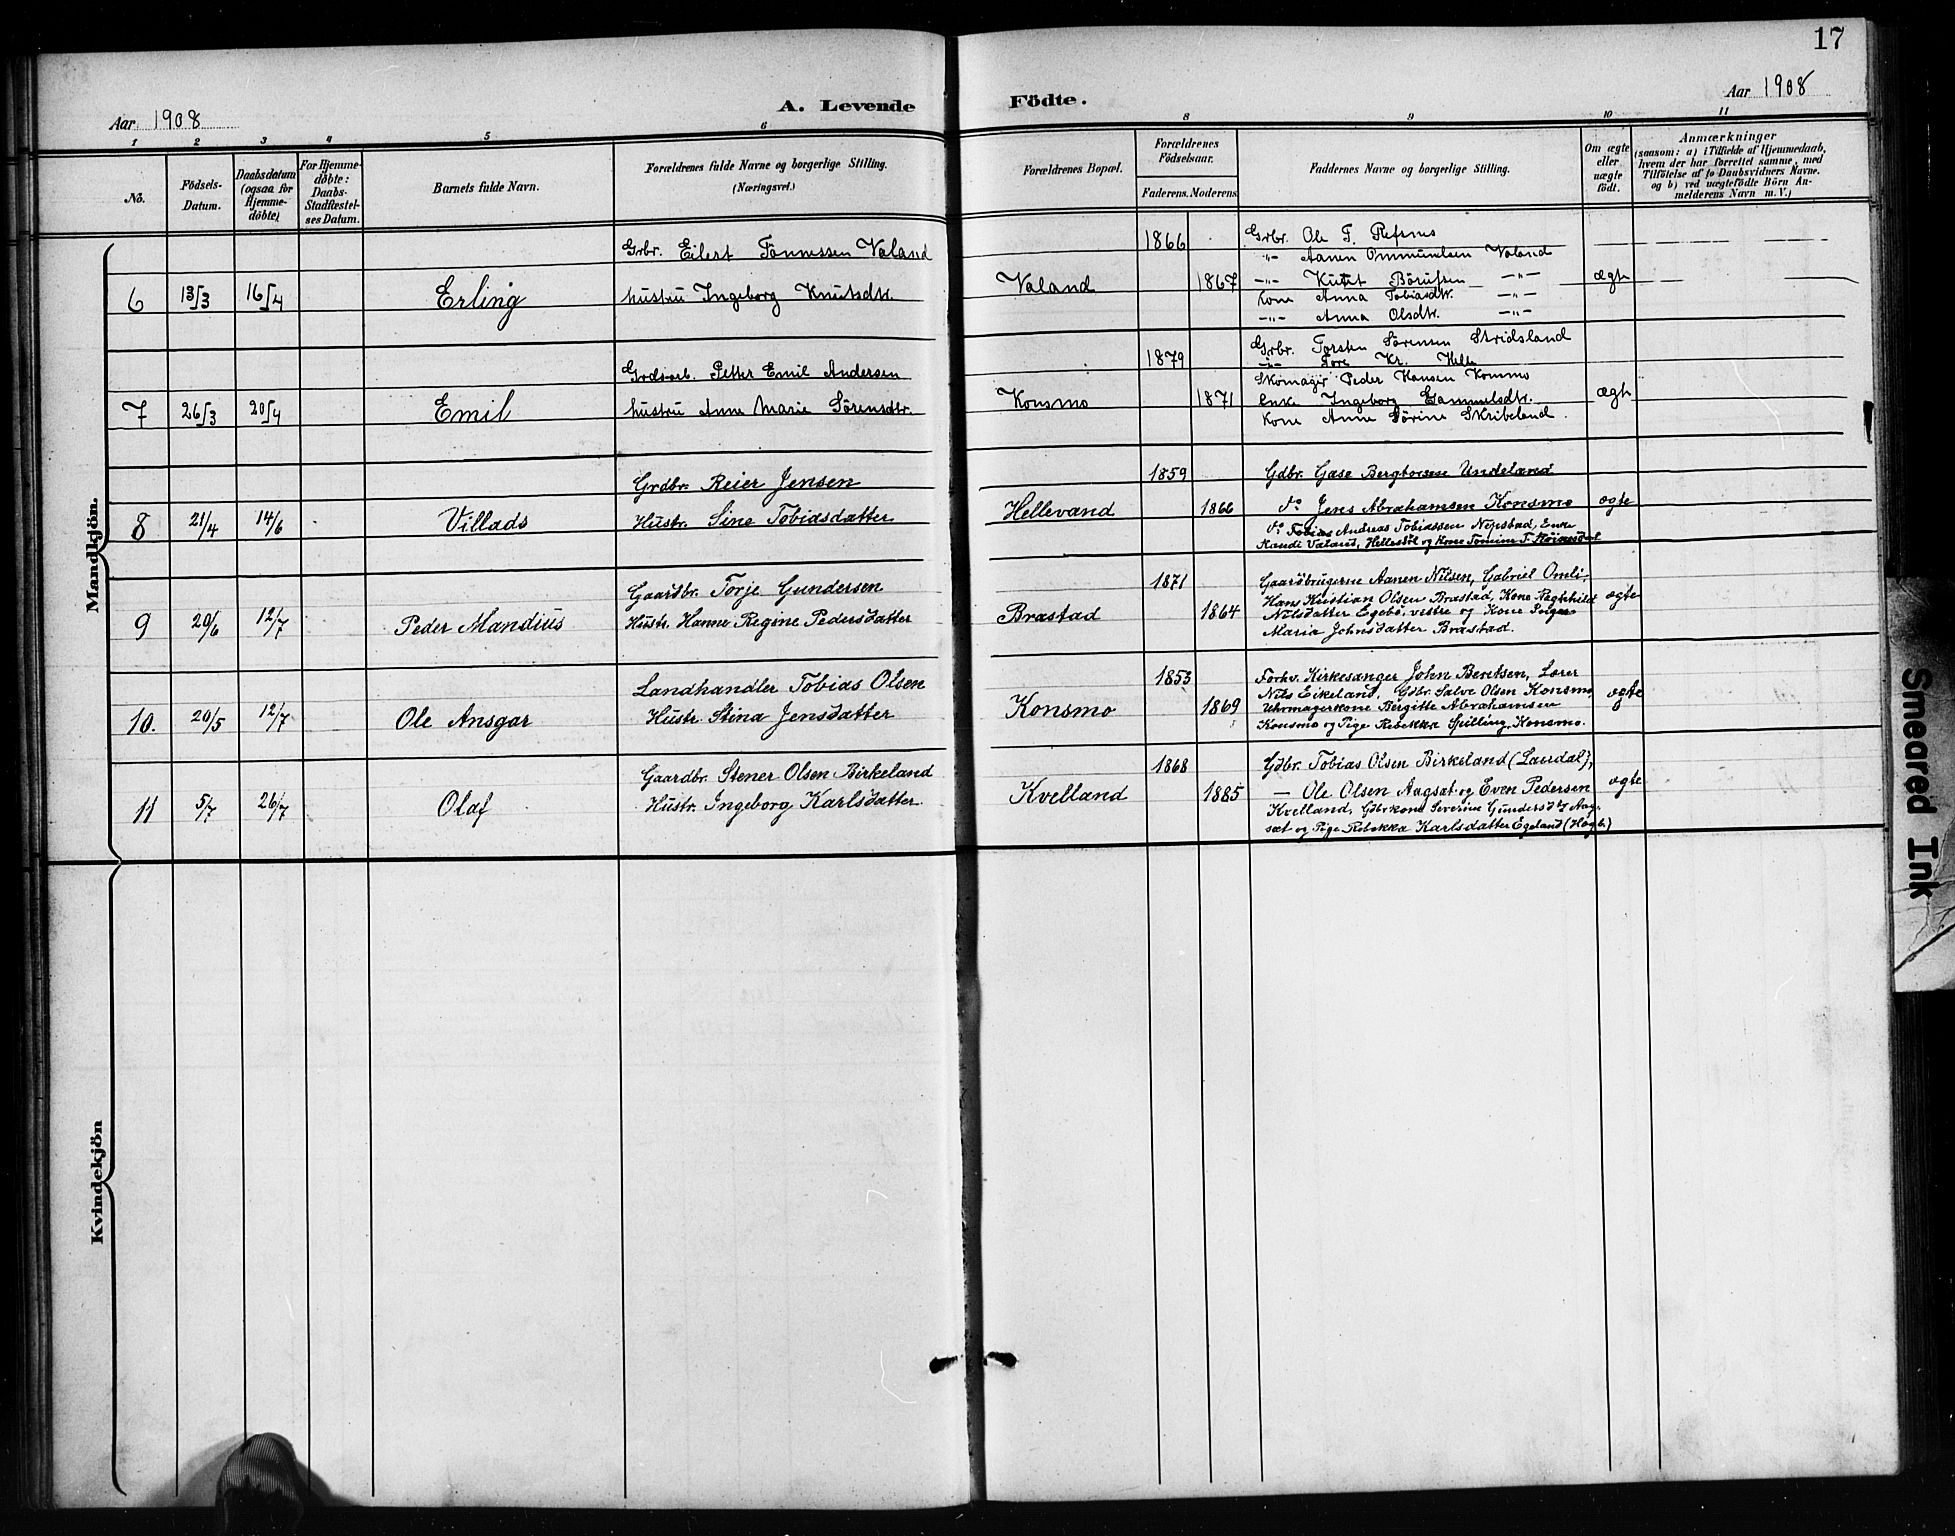 17
Aar 1908
A. Levende
Födte.
Aar 1908
1 2 3 4 5 6 8 9 10 11
No.
Födsels-
Datum.
Daabsdatum
(ogsaa for
Hjemme-
döbte)
For Hjemme-
döbte:
Daabs-
Stadfæstel-
ses Datum.
Barnets fulde Navn.
Forældrenes fulde Navne og borgerlige Stilling.
(Næringsvei.)
Forældrenes Bopæl.
Forældrenes
Födselsaar.
Faderens. Moderens.
Faddernes Navne og borgerlige Stilling.
Om ægte
eller
uægte
födt.
Anmærkninger
(saasom: a) i Tilfælde af Hjemmedaab,
hvem der har forrettet samme, med
Tilföielse af to Daabsvidners Navne.
og b) ved uægtefödte Börn An-
melderens Navn m.V.)
Mandkjön.
6 13/3 16/4 Erling
Grbr. Eilert Tönnessen Valand
hustru Ingeborg Knutsdtr.
Valand 1866 1867
Grbr. Ole T. Refsnes
-"- Aanen Ommundsen Valand
-"- Knut -"-
Kone Anna Tobiasdtr. -"-
-"- Anna Olsdtr. -"-
ægte
7 26/3 20/4 Emil
Grdsarb. Petter Emil Andersen
hustru Anne Marie Sörensdtr.
Konsmo 1879 1871
Grbr. Torsten Sörensen Skridsland
-"- Tore Kr. Helle
Skomager Peder Hansen Konsmo
Enke Ingeborg Gammelsdtr.
Kone Anne Sörine Skribeland.
ægte
8 21/4 14/6 Villads
Grdbr. Reier Jensen
Hustr. Sine Tobiasdatter
Hellevand 1859 1866
Gdbr. Gase Bergtorsen Undeland
do Jens Abrahamsen Konsmo
do Tobias Andreas Tobiassen Nepstad, Enke
Randi Valand, og Kone Tomine T.
ægte
9 20/6 12/7 Peder Mandius
Gaardbr. Torje Gundersen
Hustr. Hanne Regine Pedersdatter
Brastad 1871 1864
Gaardbrugerne Aanen Nilsen, Gabriel Omli,
Hans Kristian Olsen Brastad, Kone Ragnhild
Nilsdatter Egebö, vestre og Kone
Maria Johnsdatter Brastad.
ægte
10. 20/5 12/7 Ole Ansgar
Landhandler Tobias Olsen
Hustr. Stina Jensdatter
Konsmo 1853 1869
Forhv. Kirkesanger John Berntsen, Lærer
Nils Eikeland, Gdbr. Salve Olsen Konsmo,
Uhrmagerkone Bergitte Abrahamsen
Konsmo og Pige Rebekka Spilling, Konsmo.
ægte
11 5/7 26/7 Olaf
Gaardbr. Stener Olsen Birkeland
Hustr. Ingeborg Karlsdatter
Kvelland 1868 1885
Gdbr. Tobias Olsen Birkeland (Laudal),
— Ole Olsen Aagsæt og Even Pedersen
Kvelland, Gdbrkone Severine Gundersdtr Aag-
sæt og Pige Rebekka Karlsdatter Egeland (Hægb.)
ægte
Kvindekjön
Smeared Ink